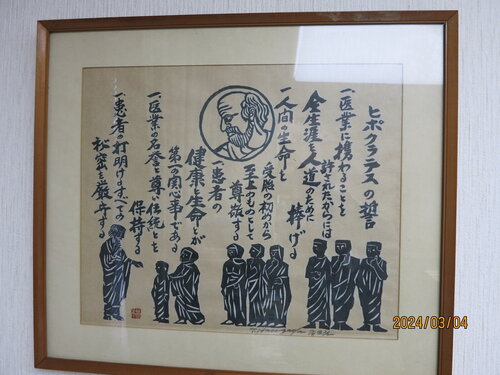 ヒポクラテスの誓
一、医業に携わることを
許されたからには
全生涯を人道のために
捧げる
一、人間の生命を
受胎の初めから
至上のものとして
尊敬する
一、患者の
健康と生命とが
第一の関心事である
一、医業の名誉と尊い伝統とを
保持する
一、患者の打明けるすべての
秘密を厳守する
2024/03/04